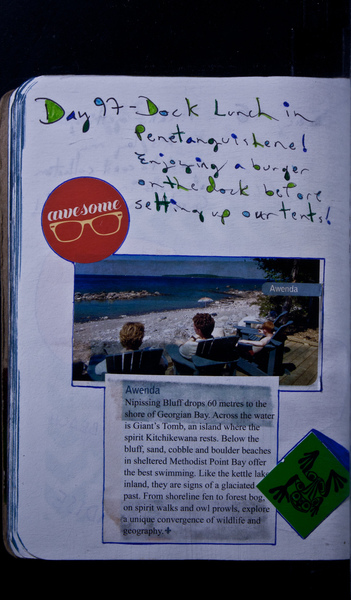 Day 97 - Dock Lunch in
Penetanguishene!
Enjoying a burger
on the dock before
setting up our tents!
awesome
Awenda
Awenda
Nipissing Bluff drops 60 metres to the
shore of Georgian Bay. Across the water
is Giant's Tomb, an island where the
spirit Kitchikewana rests. Below the
bluff, sand, cobble and boulder beaches
in sheltered Methodist Point Bay offer
the best swimming. Like the kettle lake
inland, they are signs of a glaciated
past. From shoreline fen to forest bog,
on spirit walks and owl prowls, explore
a unique convergence of wildlife and
geography.